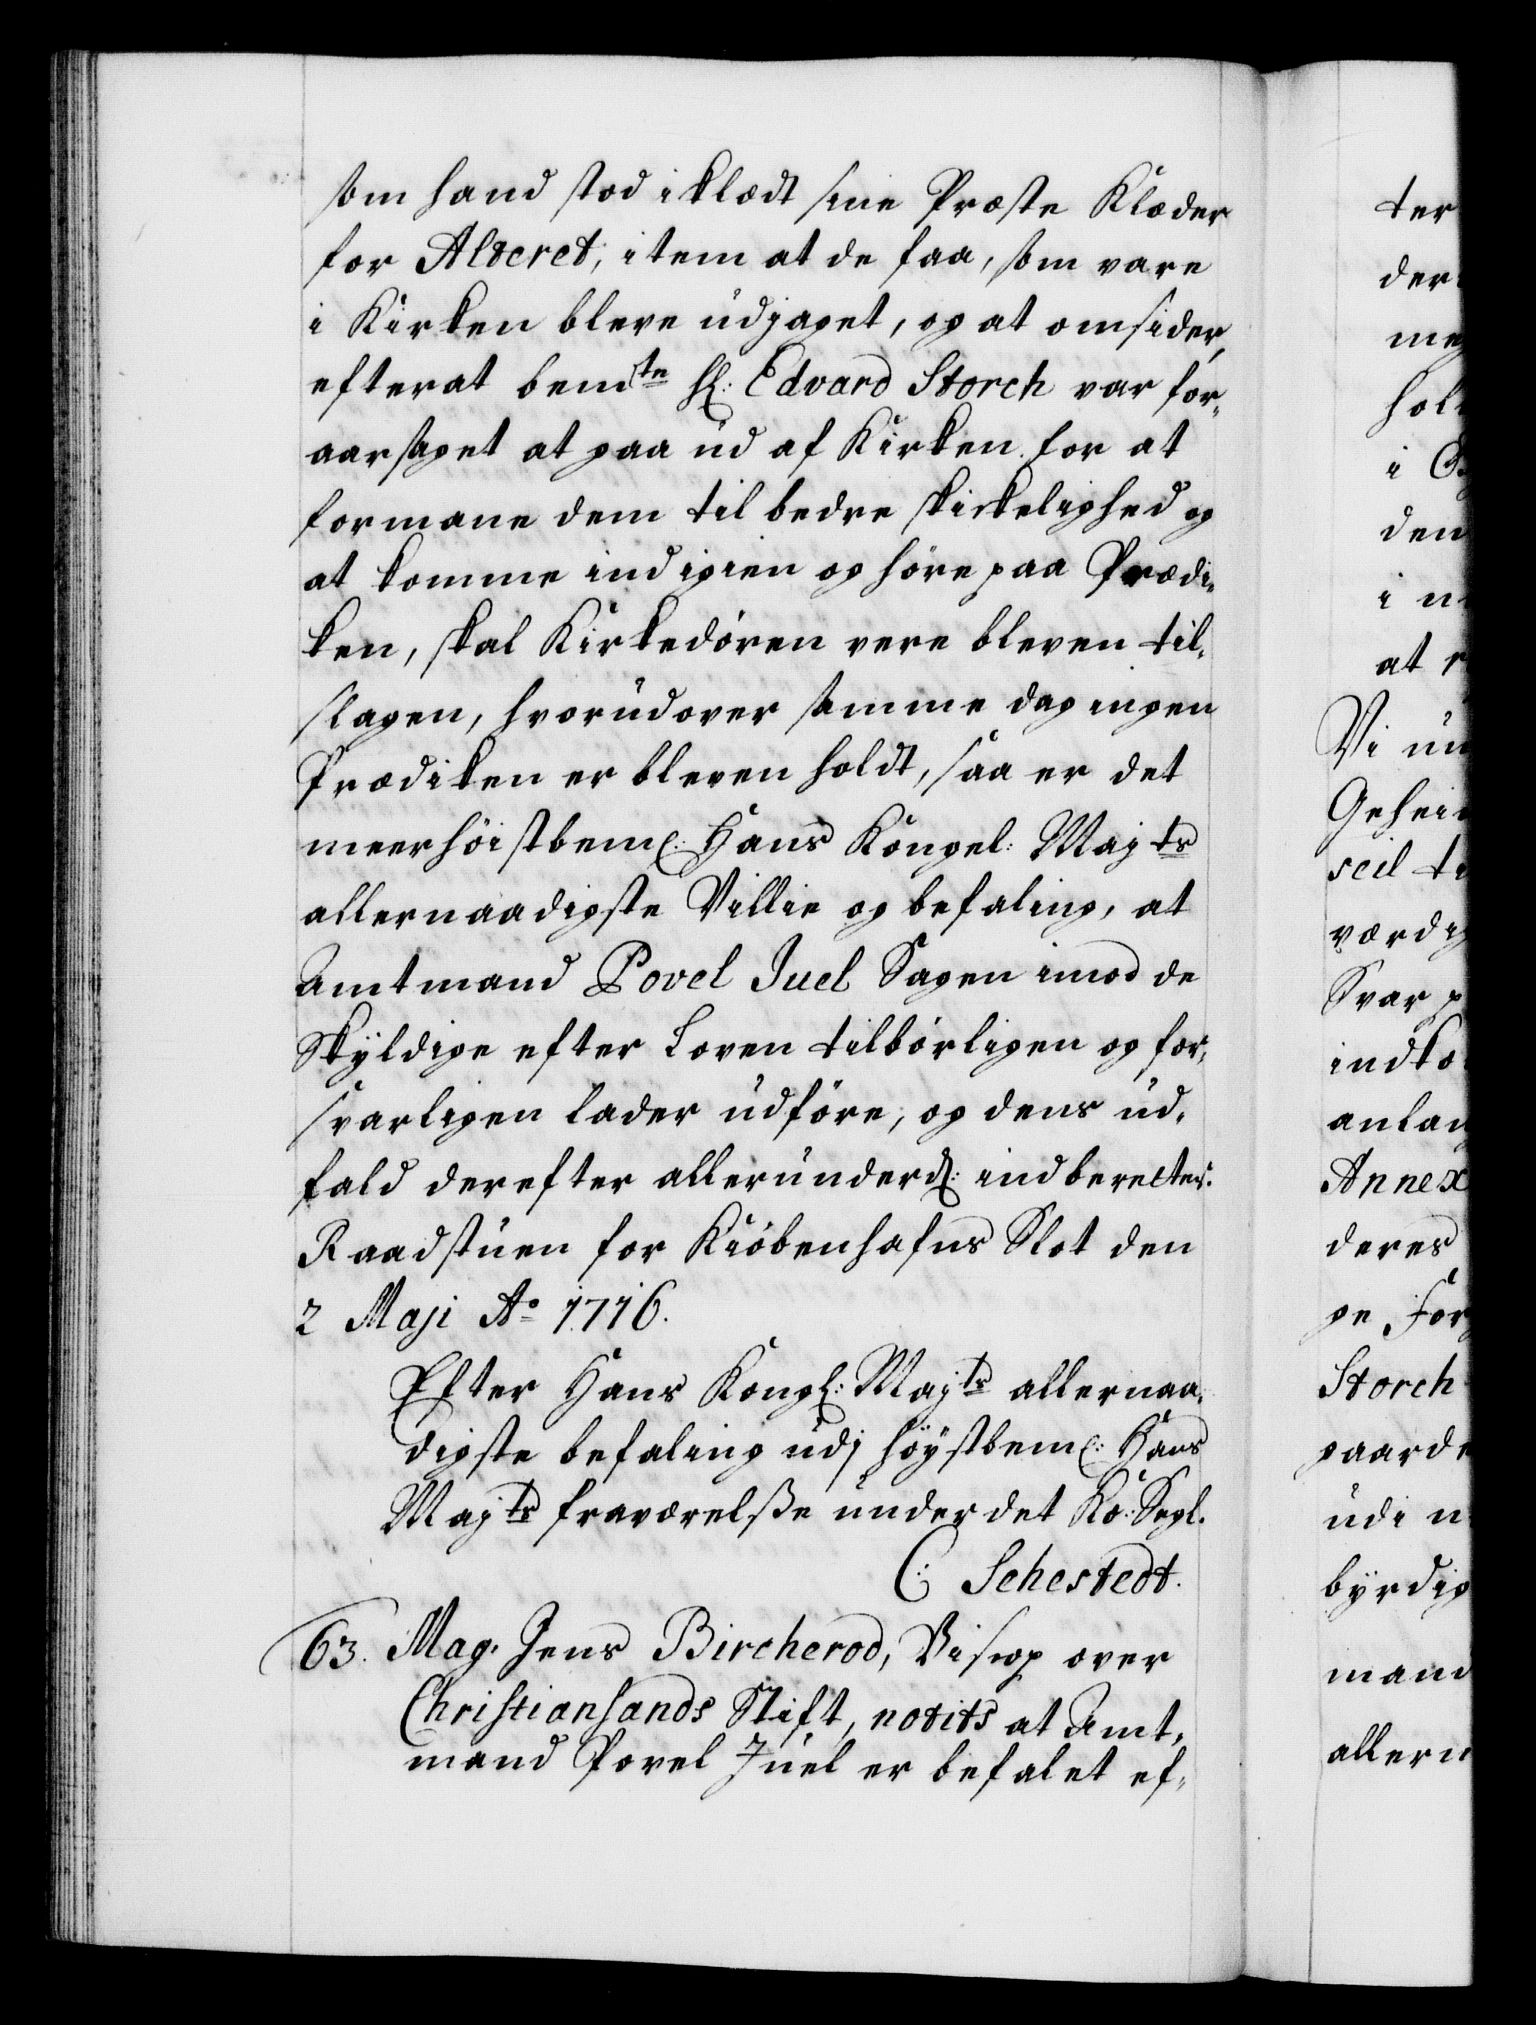 som hand stod i klædt sine Præste Klæder
for Alteret; item at de faa, som vare
i Kirken bleve udjaget, og at omsider,
efterat bemte Hr: Edvard Storch var for„
aarsaget at gaa ud af Kirken for at
formane dem til bedre skikkelighed og
at komme ind igien og høre paa Prædi„
ken, skal Kirkedøren vere bleven til„
slagen, hvorudover samme dag ingen
Prædiken er bleven holdt, saa er det
meerhøistbemt: Hans Kongel: Majts
allernaadigste Villie og befaling, at
Amtmand Povel Juel Sagen imod de
Skyldige efter Loven tilbørligen og for„
svarligen lader udføre, og dens ud„
fald derefter allerunderd: indberetter.
Raadstuen for Kiøbenhafns Slot den
2 Maji Ao 1716.
Efter Hans Kongl: Majts allernaa„
digste befaling udj høystbemt: Hans
Majts fraværelsse under det Ko: Segl.
C: Sehestedt.
63. Mag. Jens Bircherod, Biscop over
Christiansands Stift, notits at Amt„
mand Povel Juel er befalet ef„
ter
der
meg
hol
i
den
i
at
Vi un
Gehei
seil ti
værdig
Svar p
indko
anlan
Annex
deres
ge For
Storch
gaarde
udi n
byrdig
mand
allern